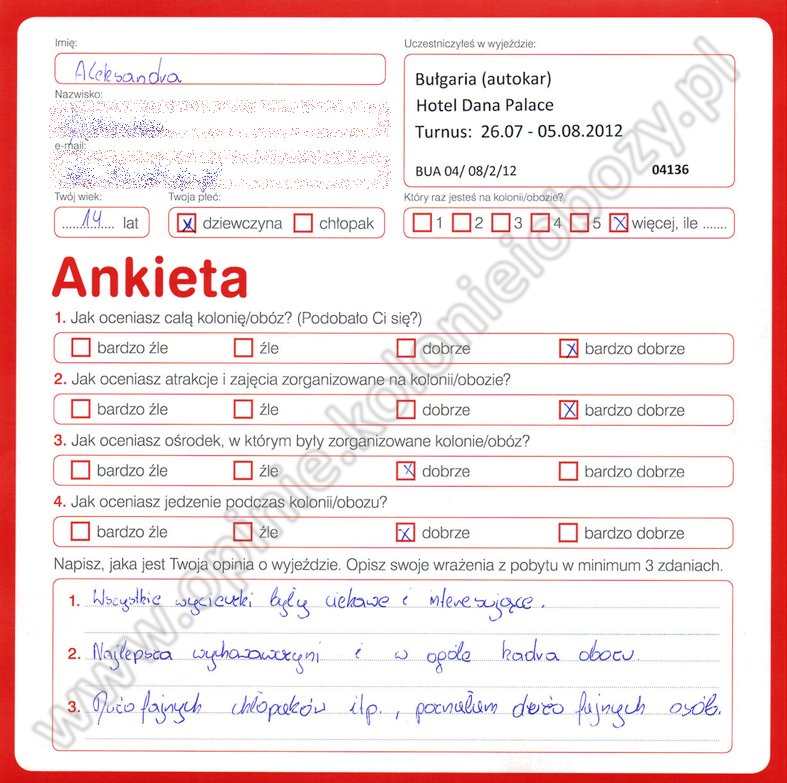 Imię:
Uczestniczyłeś w wyjeździe:
Aleksandra
Bułgaria (autokar)
Hotel Dana Palace
Turnus: 26.07 - 05.08.2012
BUA 04/ 08/2/12 04136
Nazwisko:
e-mail:
Twój wiek: Twoja płeć: Który raz jesteś na kolonii/obozie?
14 lat x dziewczyna chłopak 1 2 3 4 5 x więcej, ile .......
Ankieta
1. Jak oceniasz całą kolonię/obóz? (Podobało Ci się?)
bardzo źle źle dobrze x bardzo dobrze
2. Jak oceniasz atrakcje i zajęcia zorganizowane na kolonii/obozie?
bardzo źle źle dobrze x bardzo dobrze
3. Jak oceniasz ośrodek, w którym były zorganizowane kolonie/obóz?
bardzo źle źle x dobrze bardzo dobrze
4. Jak oceniasz jedzenie podczas kolonii/obozu?
bardzo źle źle x dobrze bardzo dobrze
Napisz, jaka jest Twoja opinia o wyjeździe. Opisz swoje wrażenia z pobytu w minimum 3 zdaniach.
1. Wszystkie wycieczki były ciekawe i interesujące.
2. Najlepsza wychowawczyni i w ogóle kadra obozu.
3. Dużo fajnych chłopaków itp., poznałam dużo fajnych osób.
www.opinie.kolonieiobozy.pl